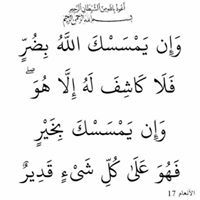 أعوذ بالله من الشيطان الرجيم
بسم الله الرحمن الرحيم
وَإِن يَمْسَسْكَ اللَّهُ بِضُرٍّ
فَلَا كَاشِفَ لَهُ إِلَّا هُوَ ۖ
وَإِن يَمْسَسْكَ بِخَيْرٍ
فَهُوَ عَلَىٰ كُلِّ شَيْءٍ قَدِيرٌ
الأنعام 17